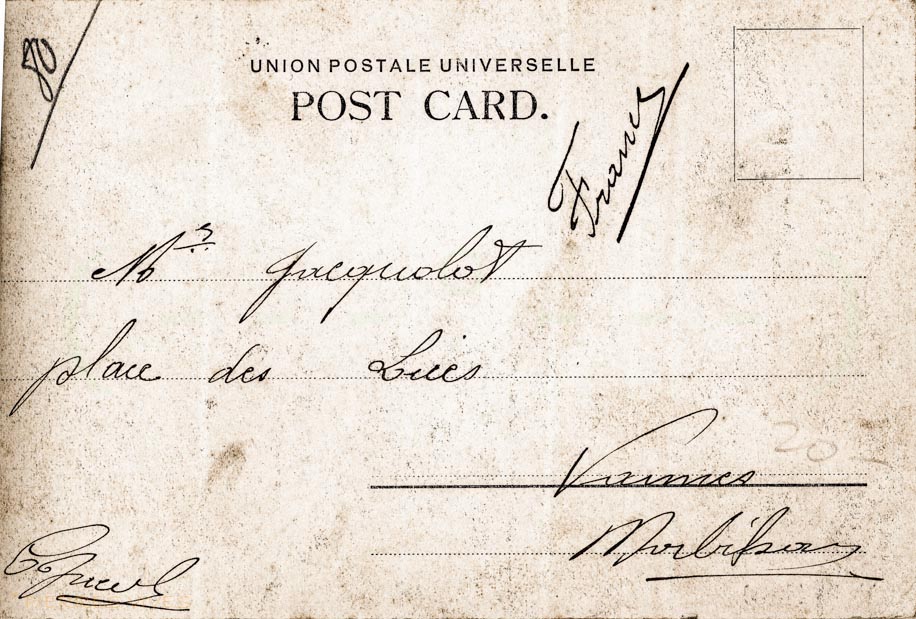 80
UNION POSTALE UNIVERSELLE
POST CARD.
France
Mrs Jacquolot
place des Lices
Vannes
Morbihan
20